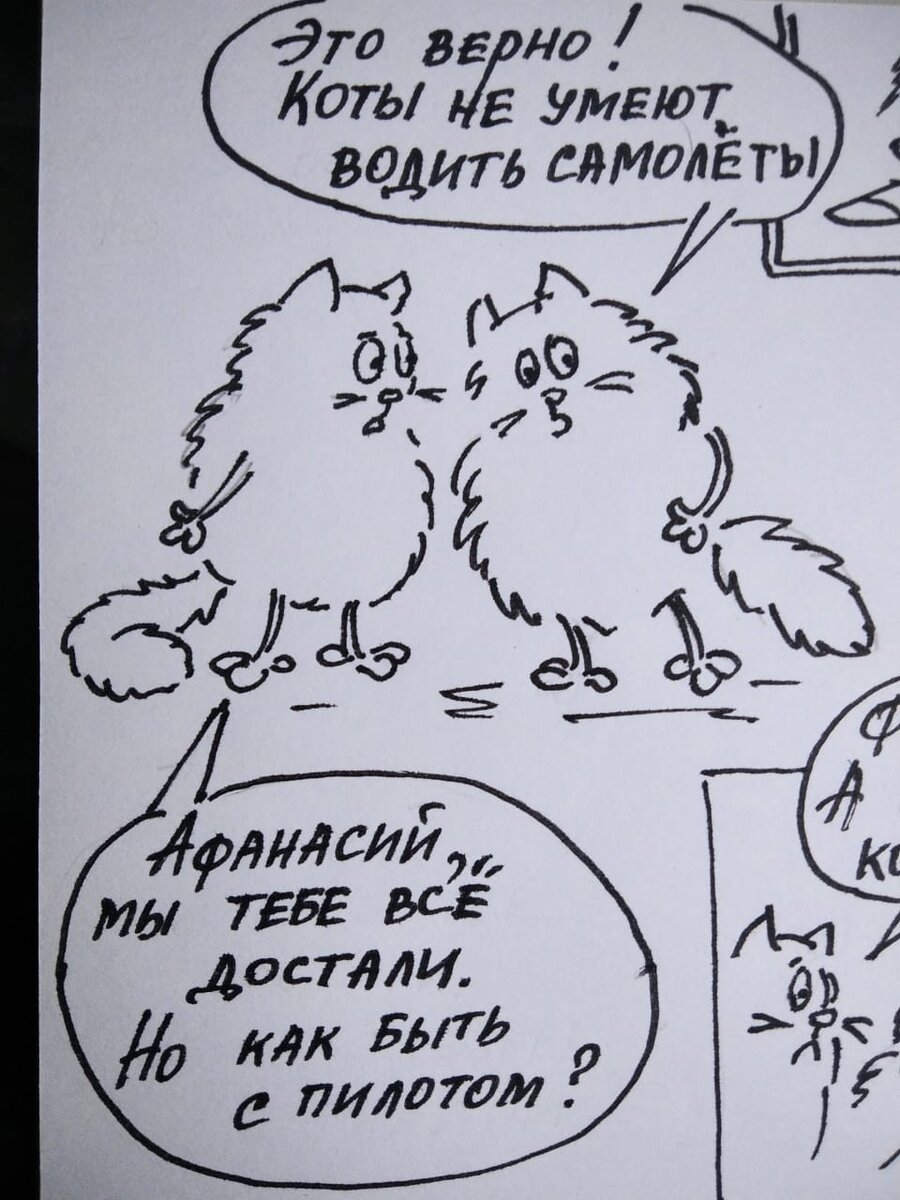 Это верно!
Коты не умеют
водить самолёты
Афанасий,
мы тебе всё
достали.
Но как быть
с пилотом?
А